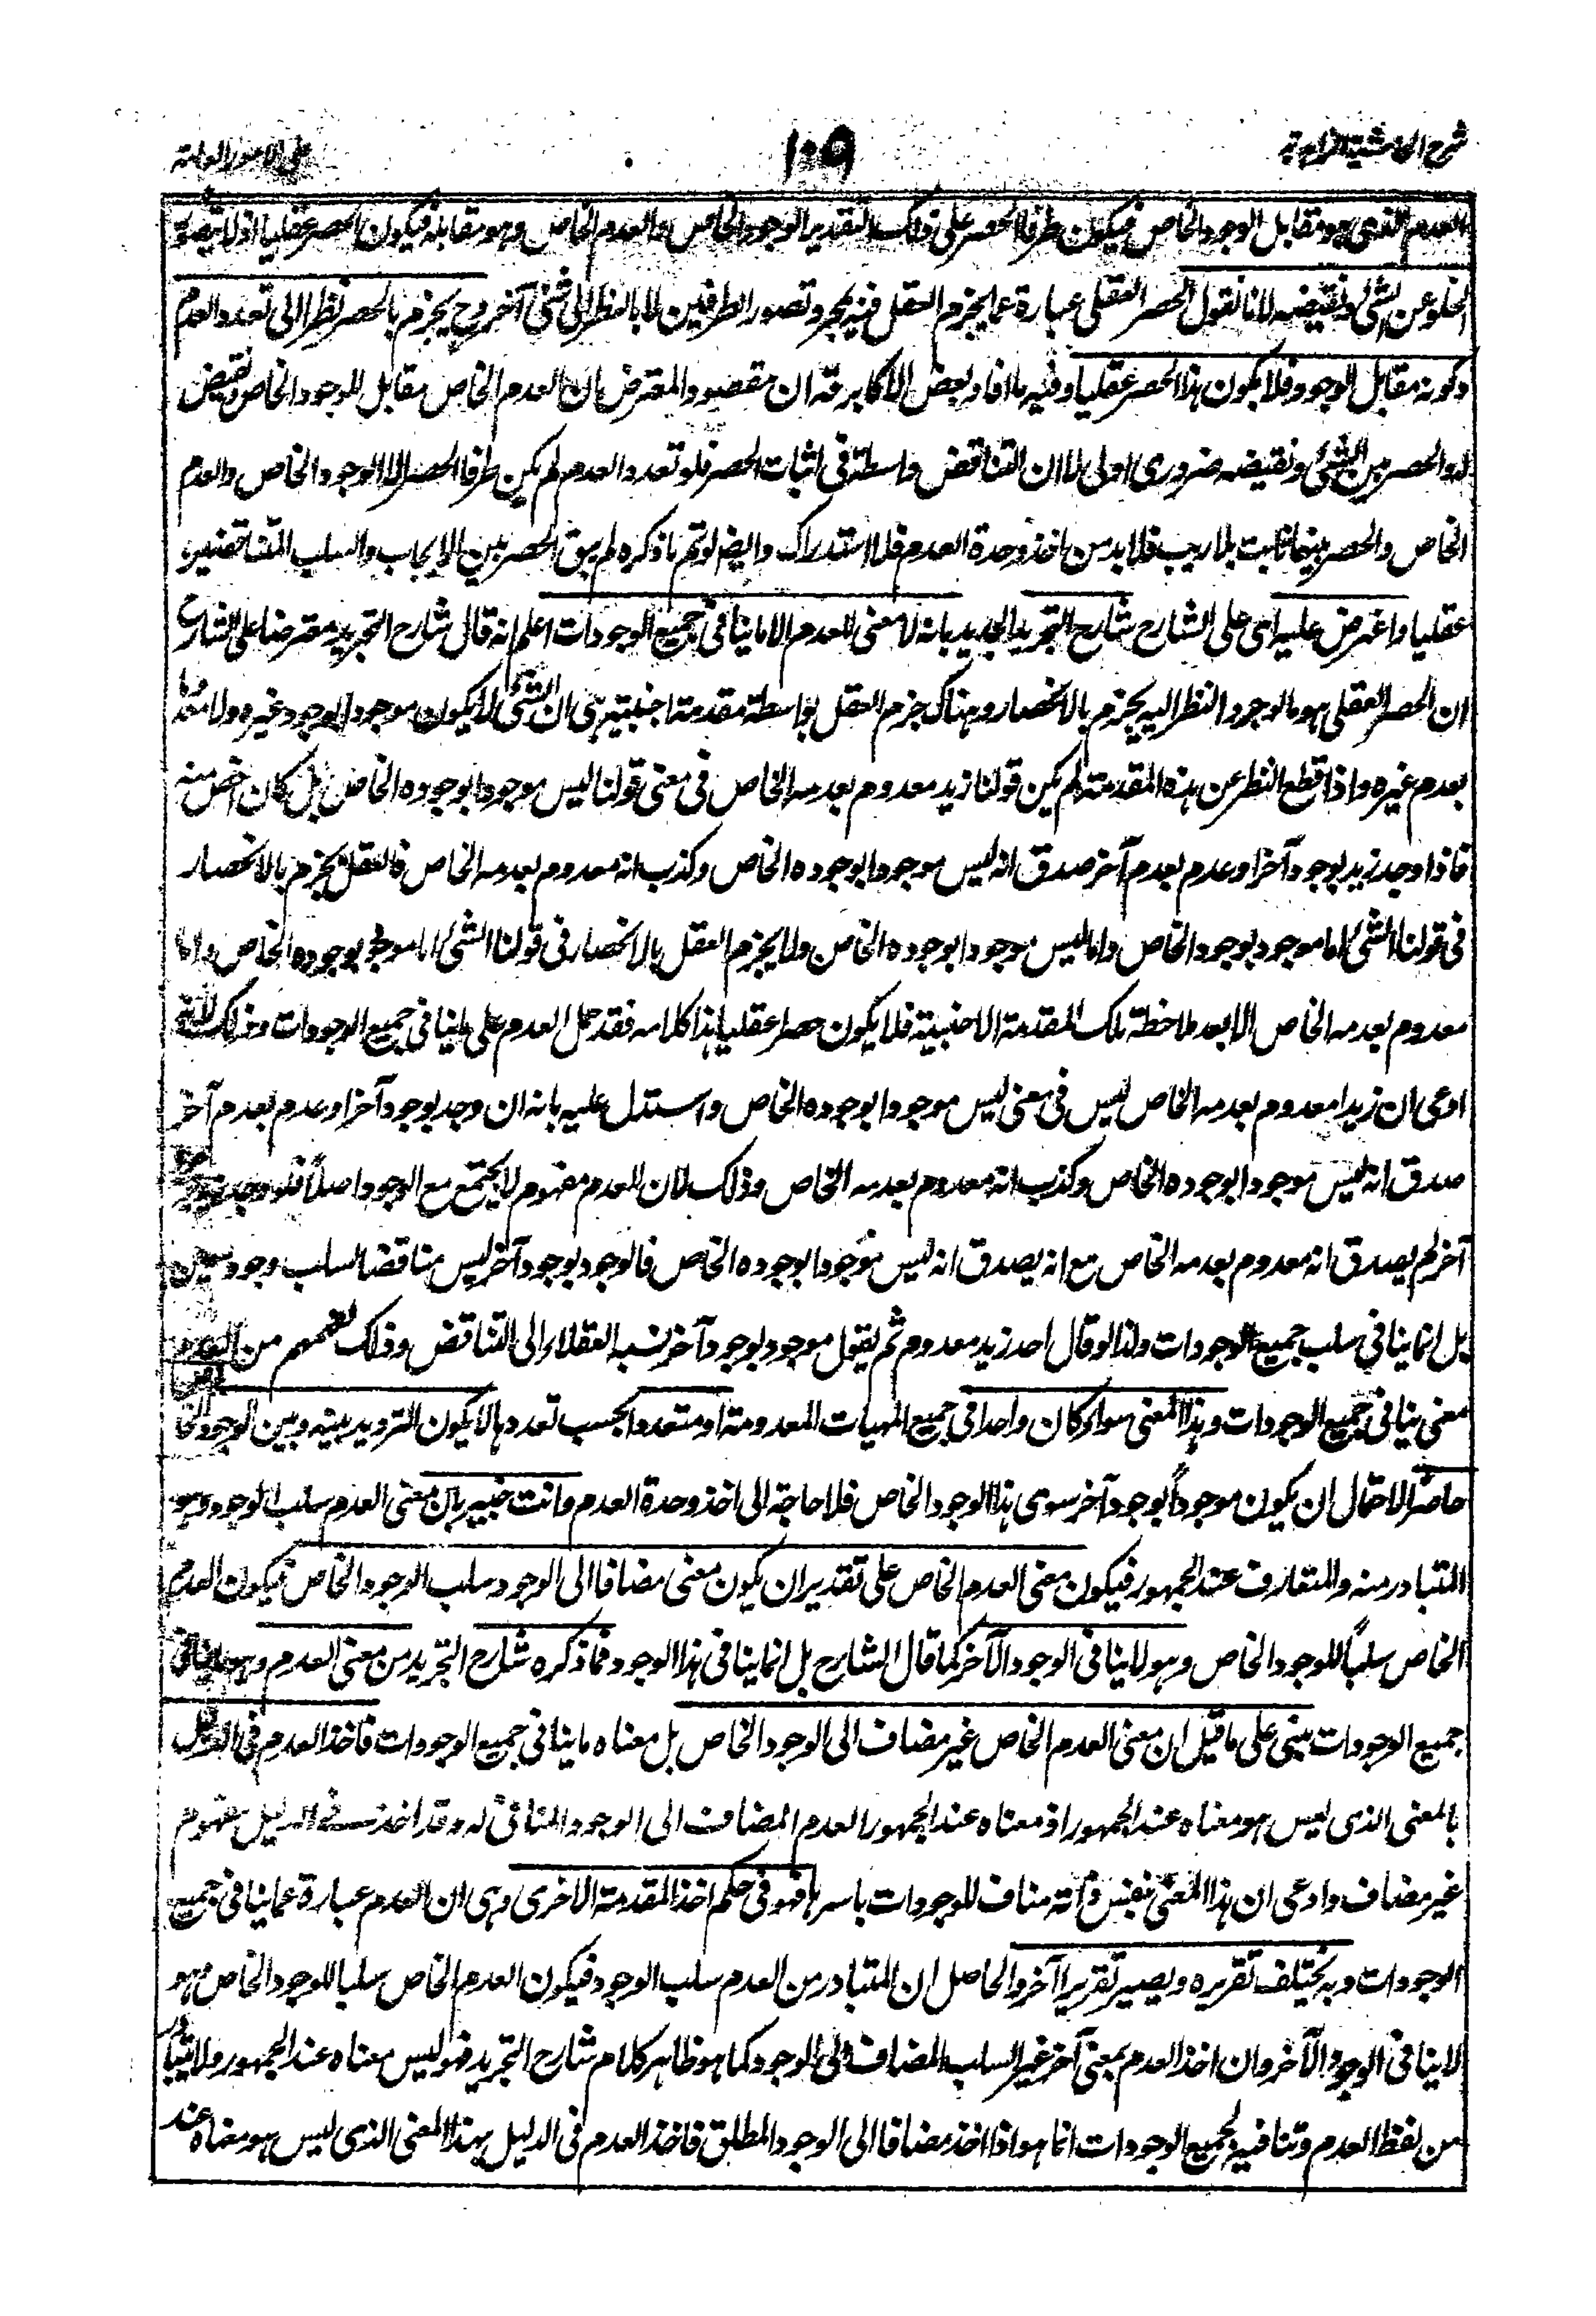 شرح الحاشية الزاهدية
١٠٩
على الامور العامة
العدم الذى هو مقابل الوجود الخاص فيكون طرفا الحصر على ذلك التقدير الوجود الخاص والعدم الخاص وهو مقابله فيكون الحصر عقليا اذ لا يتصور
الخلو عن الشئ ونقيضه لانا نقول الحصر العقلى عبارة عما يجزم العقل فيه بمجرد تصور الطرفين لا بالنظر الى شئ آخر وح يجزم بالحصر نظرا الى تعدد العدم
وكونه مقابل الوجود فلا يكون هذا الحصر عقليا وفيه ما افاد بعض الاكابر قه ان مقصود المعترض ان العدم الخاص مقابل للوجود الخاص ونقيض
له والحصر بين الشئ ونقيضه ضرورى اولى لا ان التناقض واسطة فى اثبات الحصر فلو تعدد العدم لم يكن طرفا الحصر الا الوجود الخاص والعدم
الخاص والحصر بينهما ثابت بلا ريب فلا بد من اخذ وحدة العدم فلا استدراك وايضا لو تم ما ذكره لم يبق الحصر بين الايجاب والسلب المتناقضين
عقليا واعترض عليه اى على الشارح شارح التجريد الجديد بانه لا معنى للعدم الا ما ينافى جميع الوجودات اعلم انه قال شارح التجريد معترضا على الشارح
ان الحصر العقلى هو ما لوجرد النظر اليه يجزم بالانحصار وهناك جزم العقل بواسطة مقدمة اجنبية هى ان الشئ لا يكون موجودا بوجود غيره ولا معدوما
بعدم غيره واذا قطع النظر عن هذه المقدمة لم يكن قولنا زيد معدوم بعدمه الخاص فى معنى قولنا ليس موجودا بوجوده الخاص بل كان اخص منه
فاذا وجد زيد بوجود آخر او عدم بعدم آخر صدق انه ليس موجودا بوجوده الخاص وكذب انه معدوم بعدمه الخاص فالعقل يجزم بالانحصار
فى قولنا الشئ اما موجود بوجود الخاص واما ليس موجودا بوجوده الخاص ولا يجزم العقل بالانحصار فى قولنا الشئ اما موجود بوجوده الخاص واما
معدوم بعدمه الخاص الا بعد ملاحظة تلك المقدمة الاجنبية فلا يكون حصرا عقليا هذا كلامه فقد حمل العدم على ما ينافى جميع الوجودات وذلك لانه
ادعى ان زيدا معدوم بعدمه الخاص ليس فى معنى ليس موجودا بوجوده الخاص واستدل عليه بانه ان وجد بوجود آخر او عدم بعدم آخر
صدق انه ليس موجودا بوجوده الخاص وكذب انه معدوم بعدمه الخاص وذلك لان للعدم مفهوم لا يجتمع مع الوجود اصلاً فلو وجد بوجود
آخر لم يصدق انه معدوم بعدمه الخاص مع انه يصدق انه ليس موجودا بوجوده الخاص فالوجود بوجود آخر ليس مناقضا لسلب وجود معين
بل انما ينافى سلب جميع الوجودات ولذا لو قال احد زيد معدوم ثم يقول موجود بوجود آخر نسبه العقلاء الى التناقض وذلك لفهمهم من العدم
معنى ينافى جميع الوجودات وهذا المعنى سواء كان واحدا فى جميع المهيات المعدومة او متعددا بحسب تعددها لا يكون الترديد بينه وبين الوجود الخا
حاصرا لاحتمال ان يكون موجوداً بوجود آخر سوى هذا الوجود الخاص فلا حاجة الى اخذ وحدة العدم وانت خبير بان معنى العدم سلب الوجود وهو
المتبادر منه والمتعارف عند الجمهور فيكون معنى العدم الخاص على تقدير ان يكون معنى مضافا الى الوجود سلب الوجود الخاص فيكون العدم
الخاص سلباً للوجود الخاص وهو لا ينافى الوجود الآخر كما قال الشارح بل انما ينافى هذا الوجود فما ذكره شارح التجريد من معنى العدم وهو ما ينافى
جميع الوجودات مبنى على ما قيل ان معنى العدم الخاص غير مضاف الى الوجود الخاص بل معناه ما ينافى جميع الوجودات فاخذ العدم فى الدليل
بالمعنى الذى ليس هو معناه عند الجمهور اذ معناه عند الجمهور العدم المضاف الى الوجود المنافى له وقد اخذ فى الدليل مفهوم
غير مضاف وادعى ان هذا المعنى بنفس ذاته مناف للوجودات باسرها فهو فى حكم اخذ المقدمة الاخرى وهى ان العدم عبارة عما ينافى جميع
الوجودات وبه يختلف تقريره ويصير تقريرا آخر والحاصل ان المتبادر من العدم سلب الوجود فيكون العدم الخاص سلبا للوجود الخاص وهو
لا ينافى الوجود الآخر وان اخذ العدم بمعنى آخر غير السلب المضاف الى الوجود كما هو ظاهر كلام شارح التجريد فهو ليس معناه عند الجمهور ولا يتبادر
من لفظ العدم وتنافيه لجميع الوجودات انما هو اذا اخذ مضافا الى الوجود المطلق فاخذ العدم فى الدليل بهذا المعنى الذى ليس هو معناه عند